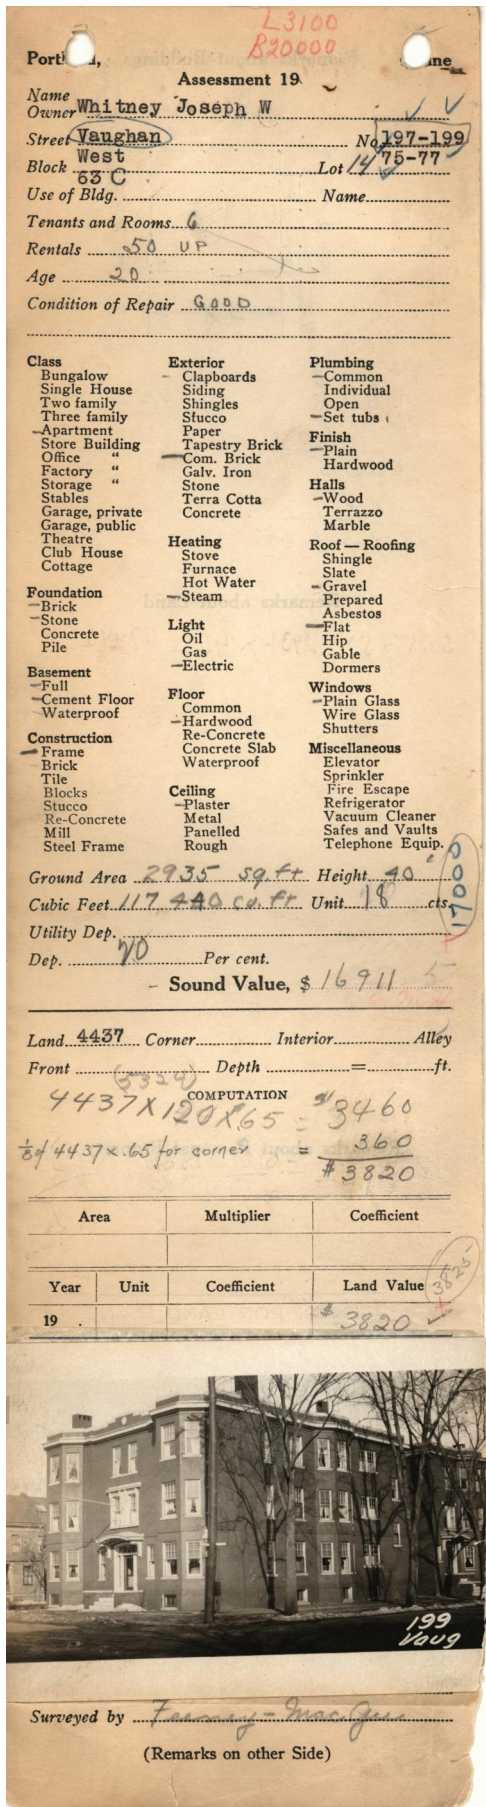 L3100
B20000
Assessment 19
Name
Owner Whitney Joseph W
Street Vaughan No. 197-199
West 75-77
Block 63 C Lot 14
Use of Bldg. Name
Tenants and Rooms 6
Rentals 50 UP
Age 20
Condition of Repair GOOD
Class
Bungalow
Single House
Two family
Three family
Apartment
Store Building
Office "
Factory "
Storage "
Stables
Garage, private
Garage, public
Theatre
Club House
Cottage
Foundation
Brick
Stone
Concrete
Pile
Basement
Full
Cement Floor
Waterproof
Construction
Frame
Brick
Tile
Blocks
Stucco
Re-Concrete
Mill
Steel Frame
Exterior
Clapboards
Siding
Shingles
Stucco
Paper
Tapestry Brick
Com. Brick
Galv. Iron
Stone
Terra Cotta
Concrete
Heating
Stove
Furnace
Hot Water
Steam
Light
Oil
Gas
Electric
Floor
Common
Hardwood
Re-Concrete
Concrete Slab
Waterproof
Ceiling
Plaster
Metal
Panelled
Rough
Plumbing
Common
Individual
Open
Set tubs
Finish
Plain
Hardwood
Halls
Wood
Terrazzo
Marble
Roof — Roofing
Shingle
Slate
Gravel
Prepared
Asbestos
Flat
Hip
Gable
Dormers
Windows
Plain Glass
Wire Glass
Shutters
Miscellaneous
Elevator
Sprinkler
Fire Escape
Refrigerator
Vacuum Cleaner
Safes and Vaults
Telephone Equip.
17000
Ground Area 2935 sq. ft Height 40'
Cubic Feet 117 440 cu. ft Unit 18 cts.
Utility Dep.
Dep. 20 Per cent.
Sound Value, $ 16911
Land 4437 Corner Interior Alley
Front Depth = ft.
(5324)
COMPUTATION
4437 X 120 X 65 = $3460
1/8 of 4437 x .65 for corner = 360
$3820
Area Multiplier Coefficient
Year Unit Coefficient Land Value
3825
19 . $ 3820
199
Vaug
Surveyed by
(Remarks on other Side)